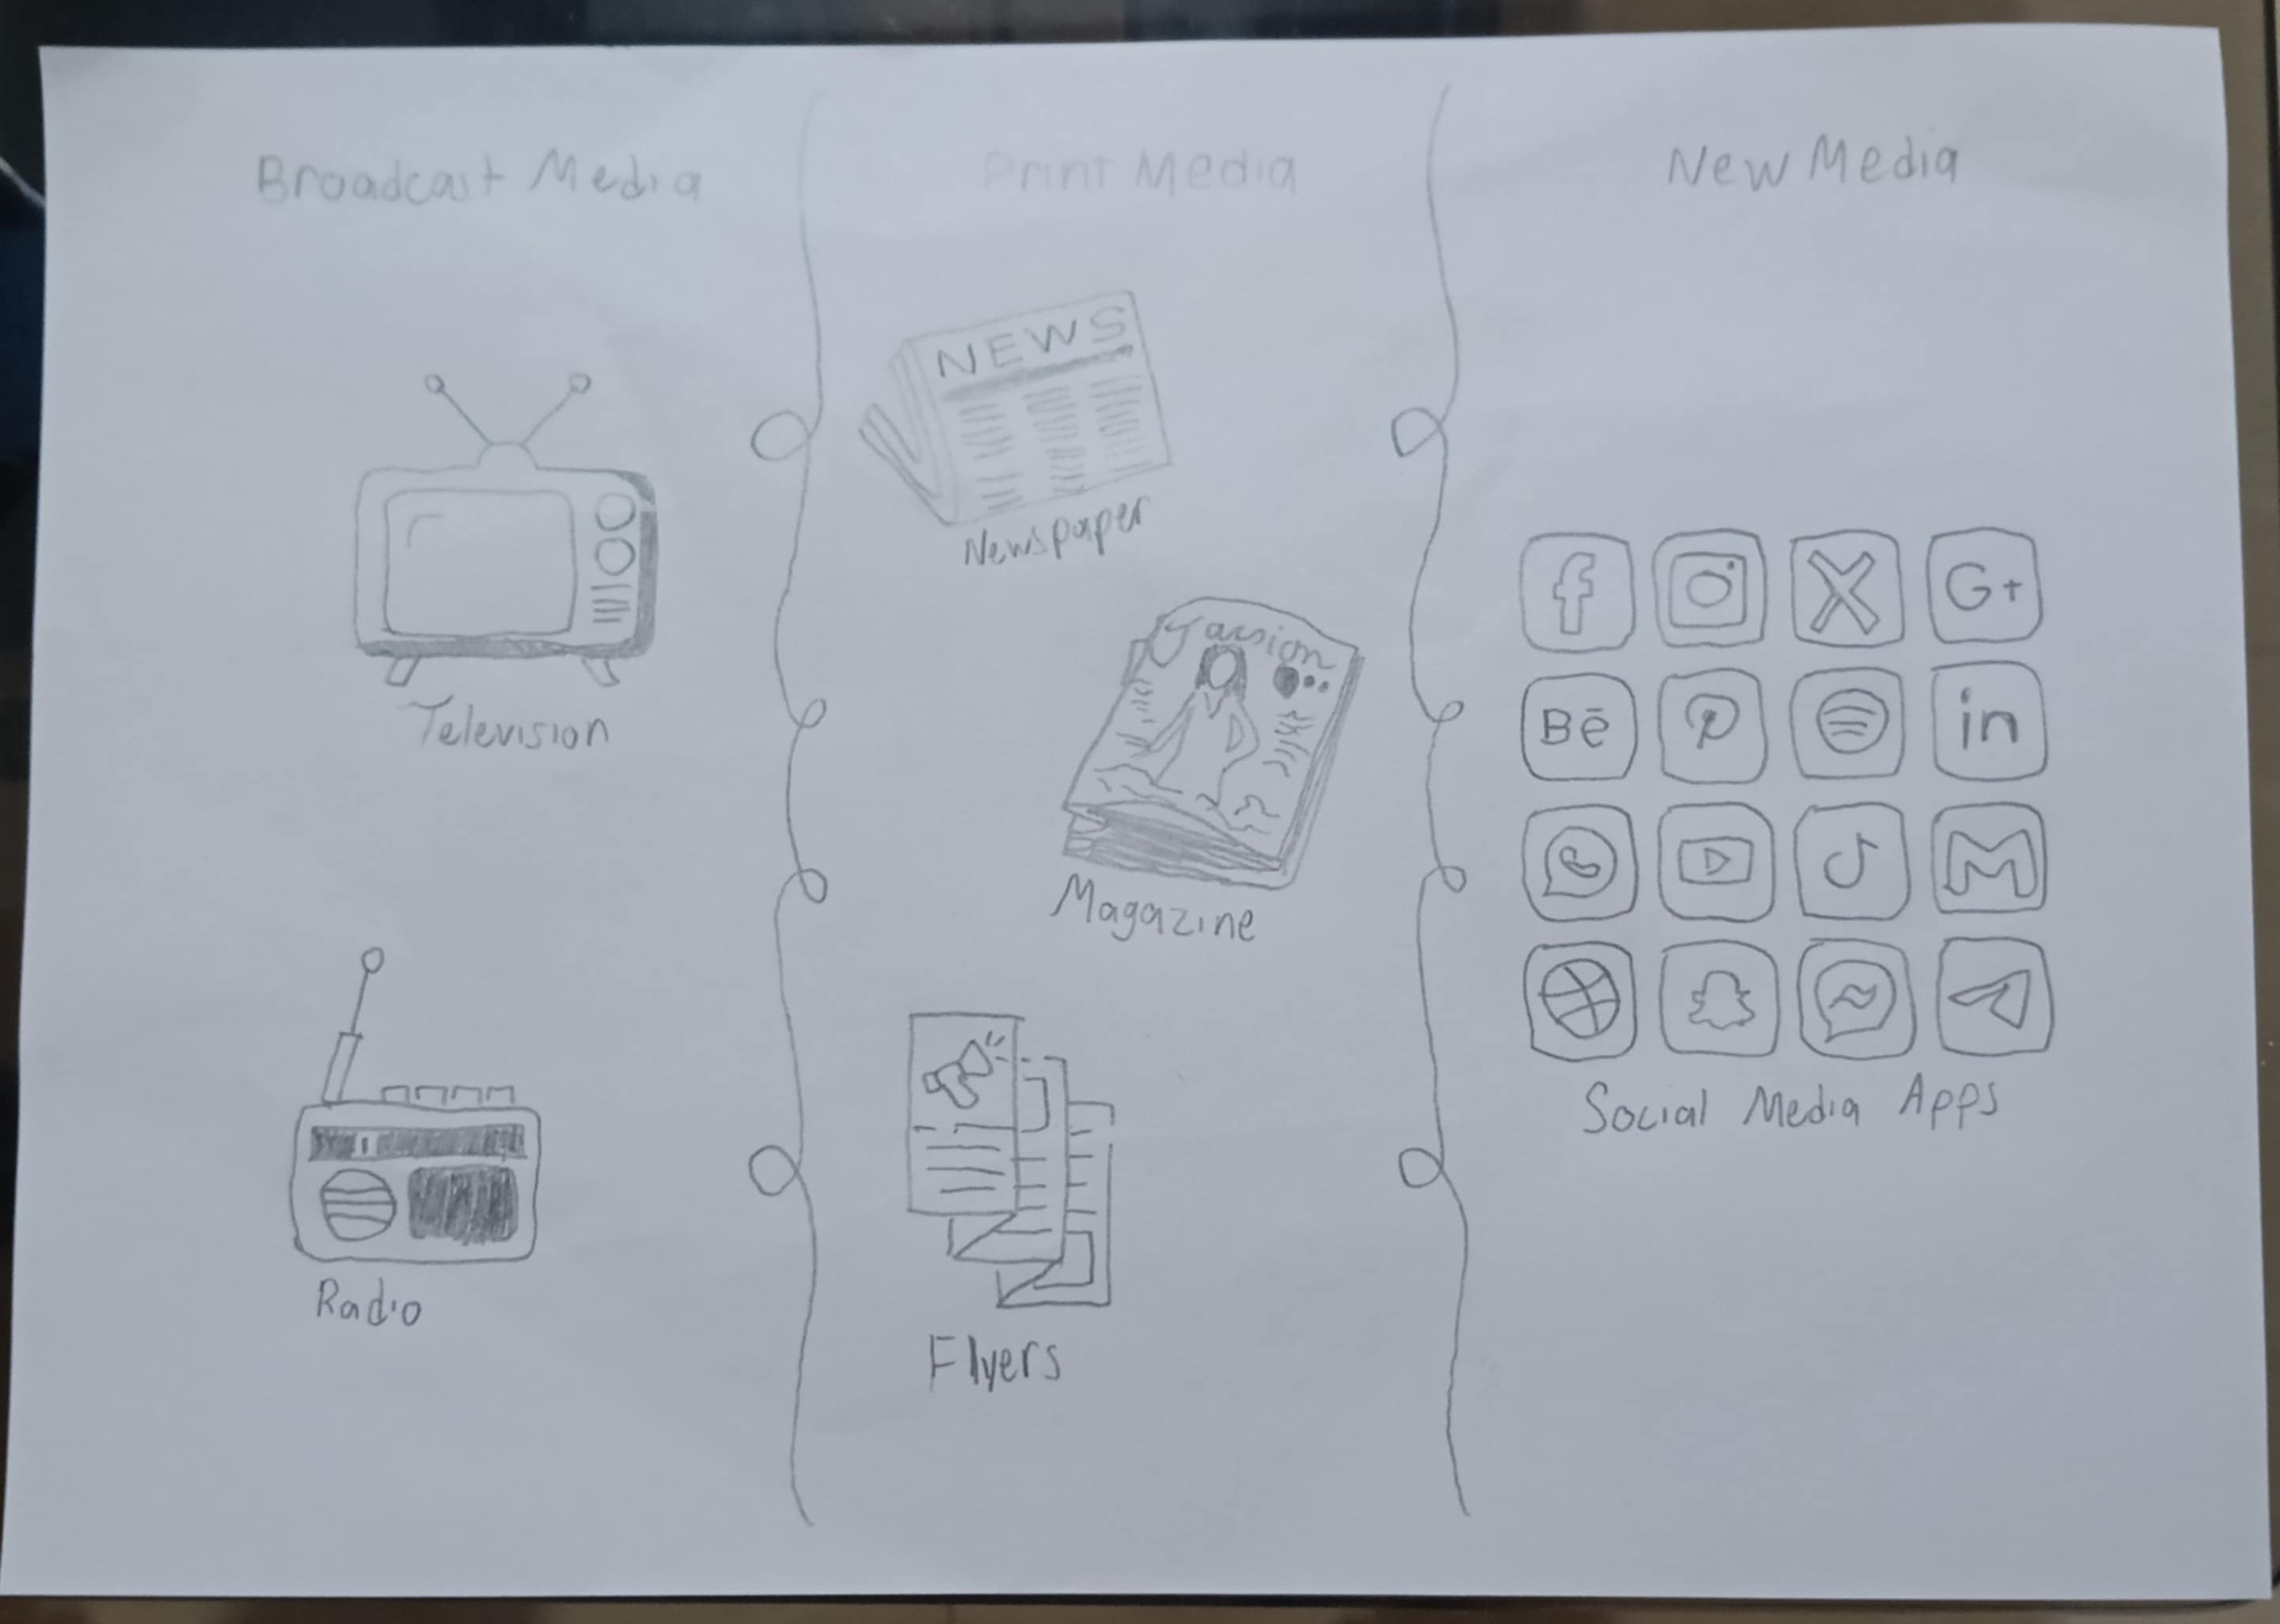 Broadcast Media
Television
Radio
Print Media
NEWS
Newspaper
Magazine
Flyers
New Media
f
X
G+
Bē
in
M
Social Media Apps